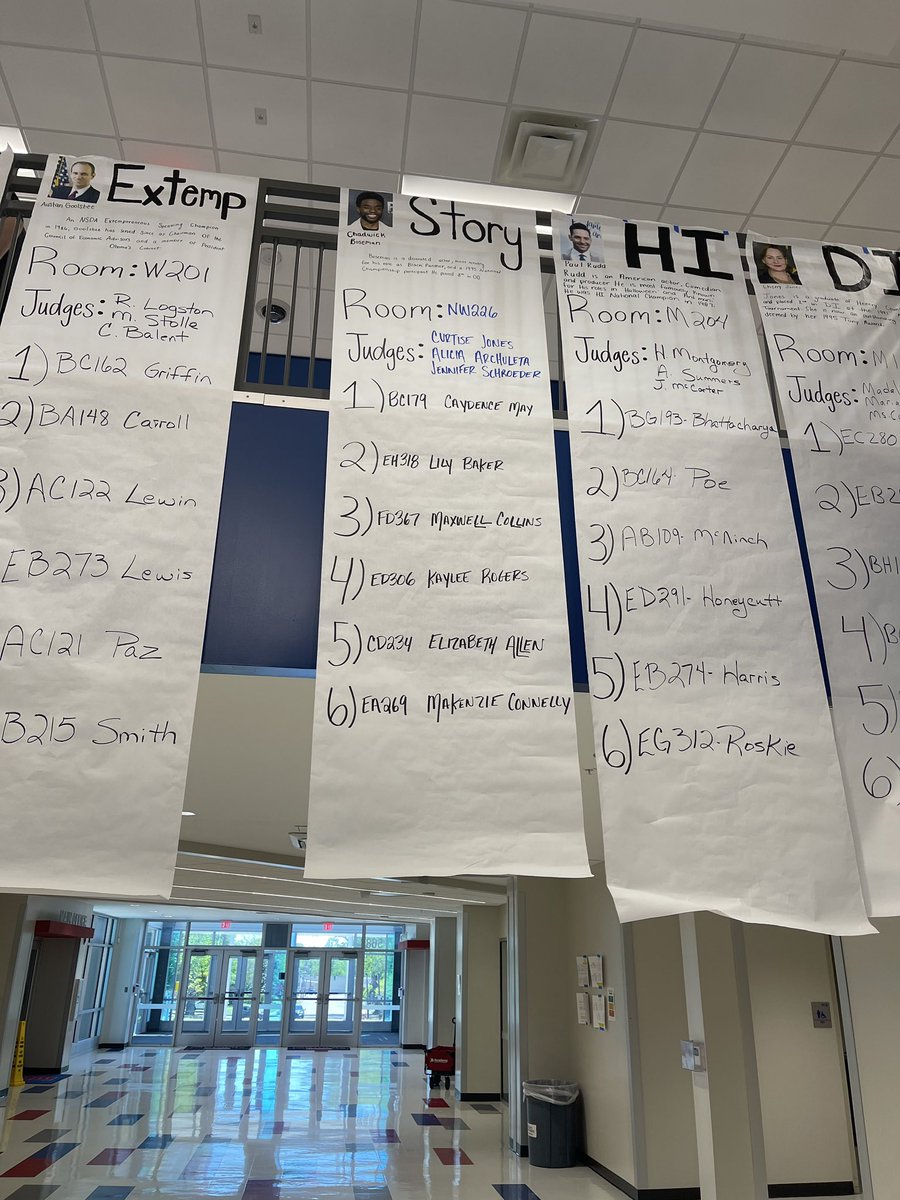 Extemp
Austan Goolsbee
An NSDA Extemporaneous Speaking Champion
in 1986, Goolsbee has served since as Chairman of the
Council of Economic Advisors and a member of President
Obama's Cabinet.
Room: W201
Judges: R. Logston
M. Stolle
C. Balent
1) BC162 Griffin
2) BA148 Carroll
3) AC122 Lewin
EB273 Lewis
AC121 Paz
B215 Smith
Story
Chadwick
Boseman
Boseman is a
for his role as Black Panther, and a 1995 National
Championship
Room: NW226
Judges: CURTISE JONES
ALICIA ARCHULETA
JENNIFER SCHROEDER
1) BC179 CAYDENCE MAY
2) EH318 LILY BAKER
3) FD367 MAXWELL COLLINS
4) ED306 KAYLEE ROGERS
5) CD234 ELIZABETH ALLEN
6) EA269 MAKENZIE CONNELLY
HI
Paul Rudd
Rudd is an American actor, comedian
and producer. He is most famously known
for his roles in Halloween and
He was HI National Champion in
Room: M204
Judges: H Montgomery
A. Summers
J. McCarter
1) BG193- Bhattacharya
2) BC164- Poe
3) AB109- McNinch
4) ED291- Honeycutt
5) EB274- Harris
6) EG312- Roskie
DI
Cherry Jones
Jones is a graduate of Henry
and placed
tournament. She is now an
deemed by her 1995 Tony Award.
Room: M1
Judges: Madel
Maria
Ms C
1) EC280
2) EB2
3) BH1
4) B
5)
6)
MAIN OFFICE
EXIT
EXIT